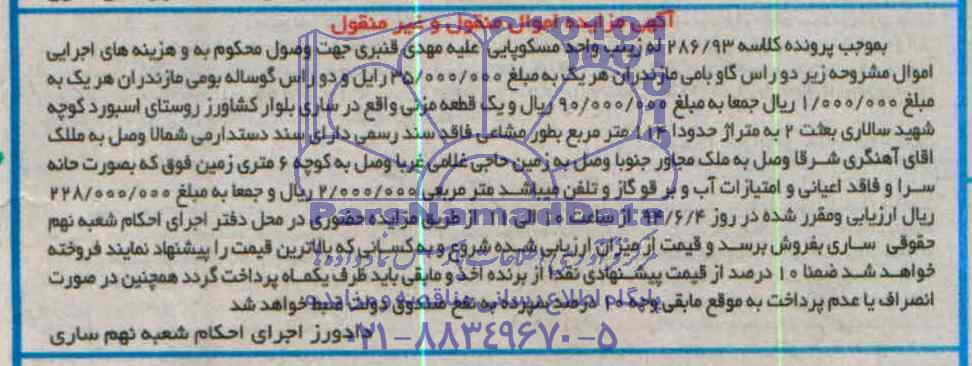 آگهی مزایده اموال منقول و غیر منقول
بموجب پرونده کلاسه ۲۸۶/۹۳ له زینب واحد مسکوپایی علیه مهدی قنبری جهت وصول محکوم به و هزینه های اجرایی
اموال مشروحه زیر دو راس گاو بامی مازندران هر یک به مبلغ ۳۵/۰۰۰/۰۰۰ رایل و دو راس گوساله بومی مازندران هر یک به
مبلغ ۱/۰۰۰/۰۰۰ ریال جمعا به مبلغ ۹۰/۰۰۰/۰۰۰ ریال و یک قطعه مزنی واقع در ساری بلوار کشاورز روستای اسبورد کوچه
شهید سالاری بعثت ۲ به متراژ حدودا ۱۱۴ متر مربع بطور مشاعی فاقد سند رسمی دارای سند دستدارمی شمالا وصل به ملک
اقای آهنگری شرقا وصل به ملک مجاور جنوبا وصل به زمین حاجی غلامی غربا وصل به کوچه ۶ متری زمین فوق که بصورت خانه
سرا و فاقد اعیانی و امتیازات آب و بر قو گاز و تلفن میباشد متر مربعی ۲/۰۰۰/۰۰۰ ریال و جمعا به مبلغ ۲۲۸/۰۰۰/۰۰۰
ریال ارزیابی ومقرر شده در روز ۹۴/۶/۴ از ساعت ۱۰ الی ۱۱ از طریق مزایده حضوری در محل دفتر اجرای احکام شعبه نهم
حقوقی ساری بفروش برسد و قیمت از میزان ارزیابی شده شروع و به کسانی که بالاترین قیمت را پیشنهاد نمایند فروخته
خواهد شد ضمنا ۱۰ درصد از قیمت پیشنهادی نقدا از برنده اخذ و مابقی باید ظرف یکماه پرداخت گردد همچنین در صورت
انصراف یا عدم پرداخت به موقع مابقی وجه ۱۰ درصد سپرده به نفع صندوق دولت ضبط خواهد شد
دادورز اجرای احکام شعبه نهم ساری
ParsNamadData
پایگاه اطلاع رسانی مناقصه و مزایده
۰۲۱-۸۸۳۴۹۶۷۰-۵